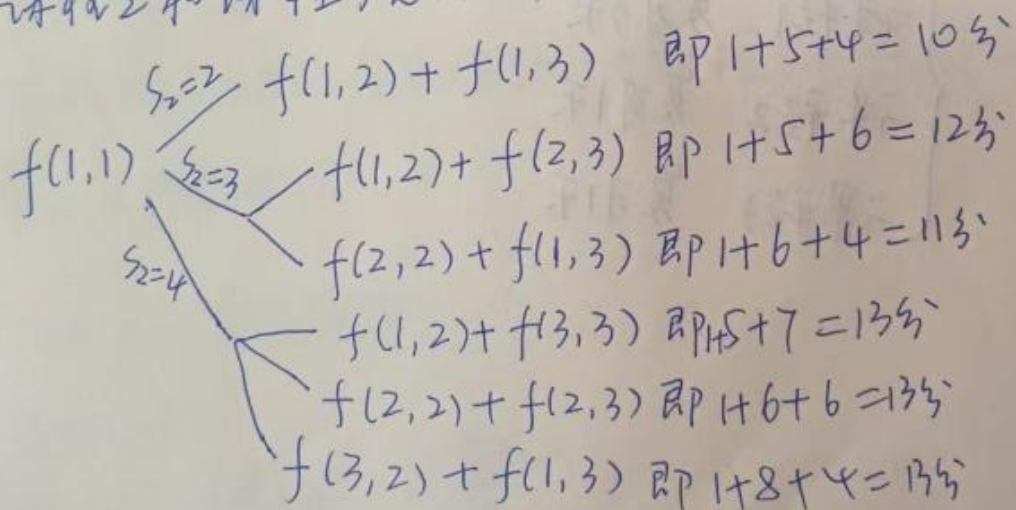 S₂=2 f(1,2)+f(1,3) 即 1+5+4=10分
f(1,1) S₂=3 f(1,2)+f(2,3) 即 1+5+6=12分
f(2,2)+f(1,3) 即 1+6+4=11分
S₂=4 f(1,2)+f(3,3) 即1+5+7=13分
f(2,2)+f(2,3) 即 1+6+6=13分
f(3,2)+f(1,3) 即 1+8+4=13分